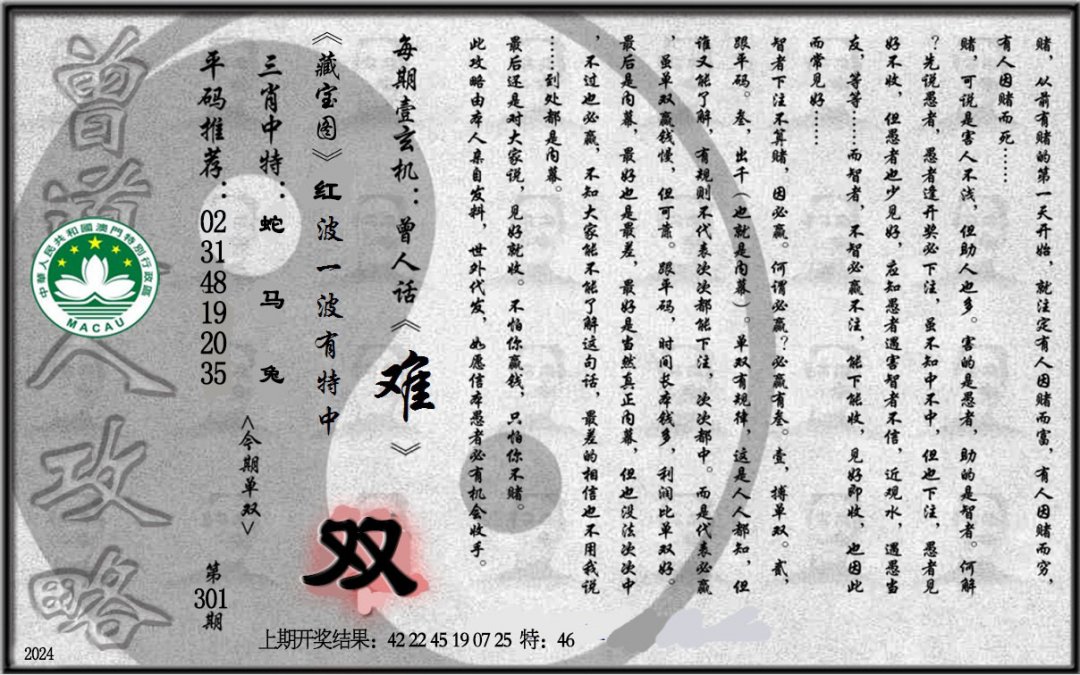 赌，从前有赌的第一天开始，就注定有人因赌而富，有人因赌而穷，
有人因赌而死……
赌，可说是害人不浅，但助人也多。害的是愚者，助的是智者。何解
？先说愚者，愚者逢开奖必下注，虽不知中不中，但也下注，愚者见
好不收，但愚者也少见好，应知愚者遇害智者不信，近观水，遇愚当
友，等等……而智者，不智必赢不注，能下能收，见好即收，也因此
而常见好……
智者下注不算赌，因必赢。何谓必赢？必赢有叁。壹，搏单双。贰，
跟平码。叁，出千（也就是内幕）。单双有规律，这是人人都知，但
谁又能了解，有规则不代表次次都能下注，次次都中。而是代表必赢
，虽单双赢钱慢，但可靠。跟平码，时间长本钱多，利润比单双好。
最后是内幕，最好也是最差，最好是当然真正内幕，但也没法次次中
，不过也必赢，不知大家能不能了解这句话，最差的相信也不用我说
……到处都是内幕。
最后还是对大家说，见好就收。不怕你赢钱，只怕你不赌。
此攻略由本人亲自发料，世外代发，如愿信本愚者必有机会收手。
每期壹玄机：曾人话《难》
《藏宝图》红波一波有特中
双
三肖中特：蛇 马 兔
<今期单双>
平码推荐：02 31 48 19 20 35
第301期
曾道人攻略
中华人民共和國澳門特別行政區
MACAU
上期开奖结果：42 22 45 19 07 25 特：46
2024